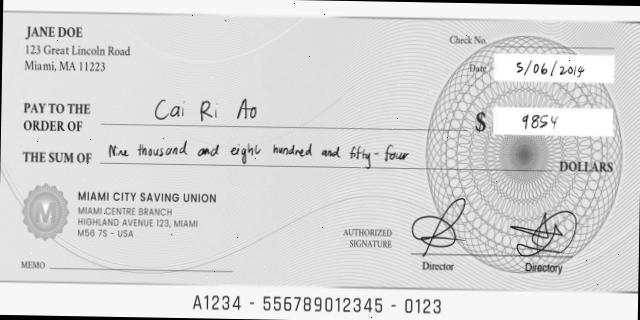 JANE DOE
123 Great Lincoln Road
Miami, MA 11223
Check No.
Date 5/06/2014
PAY TO THE
ORDER OF Cai Ri Ao
$ 9854
THE SUM OF Nine thousand and eight hundred and fifty-four DOLLARS
MIAMI CITY SAVING UNION
MIAMI CENTRE BRANCH
HIGHLAND AVENUE 123, MIAMI
M56 7S - USA
M
AUTHORIZED
SIGNATURE
Director
Directory
MEMO
A1234 - 556789012345 - 0123